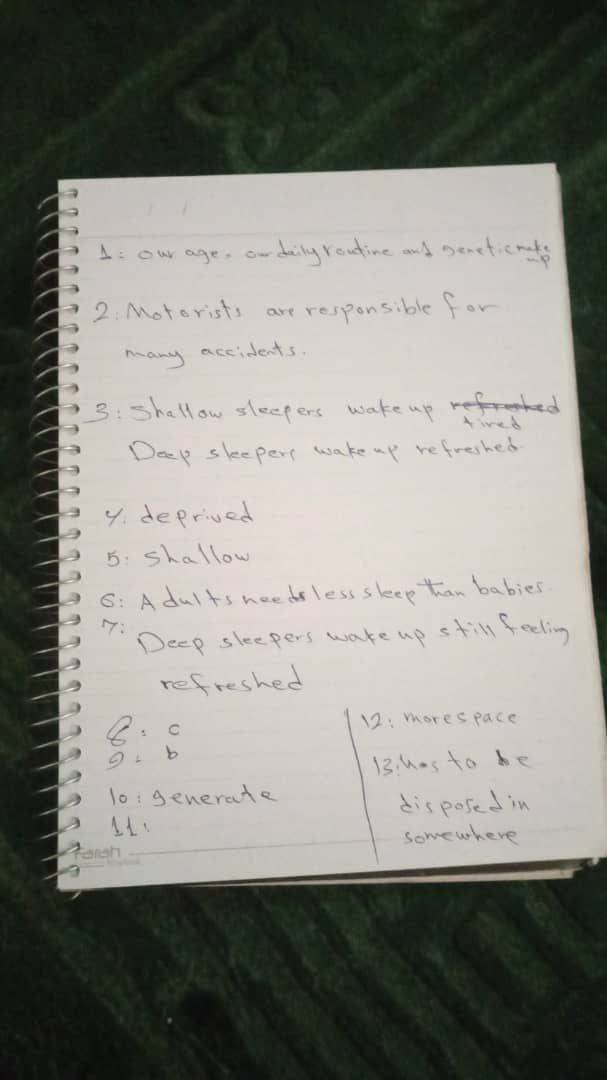 1: our age, our daily routine and genetic make
up
2. Motorists are responsible for
many accidents.
3: Shallow sleepers wake up refreshed
tired
Deep sleepers wake up refreshed.
4. deprived
5. shallow
6: Adults needs less sleep than babies.
7:
Deep sleepers wake up still feeling
refreshed
8: c
9: b
10: generate
11:
12: more space
13: has to be
disposed in
somewhere
Farah